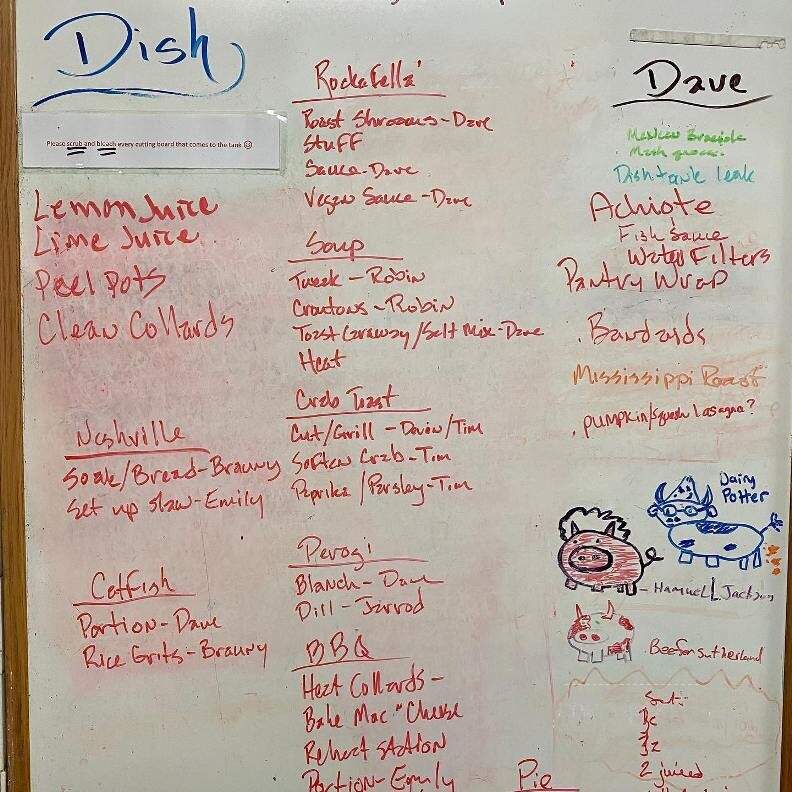 Dish
Please scrub and bleach every cutting board that comes to the tank ☺
Lemon Juice
Lime Juice
Peel Pots
Clean Collards
Nashville
Soak/Bread-Brauny
Set up Slaw-Emily
Catfish
Portion-Dave
Rice Grits-Brauny
Rockafella'
Roast Shrooms-Dave
Stuff
Sauce-Dave
Vegan Sauce-Dave
Soup
Tweak-Robin
Croutons-Robin
Toast Caraway/Salt Mix-Dave
Heat
Crab Toast
Cut/Grill-Devin/Tim
Soften Crab-Tim
Paprika/Parsley-Tim
Perogi
Blanch-Dave
Dill-Jarrod
BBQ
Heat Collards-
Bake Mac "Cheese
Reheat Station
Portion-Emily
Pie
Dave
Mexican
Dishtank leak
Achiote
Fish Sauce
Water Filters
Pantry Wrap
. Bandaids
Mississippi Roast
. pumpkin/squash lasagna?
Dairy
Potter
-Hamuel L Jackson
Beefer Sutherland
2 juiced